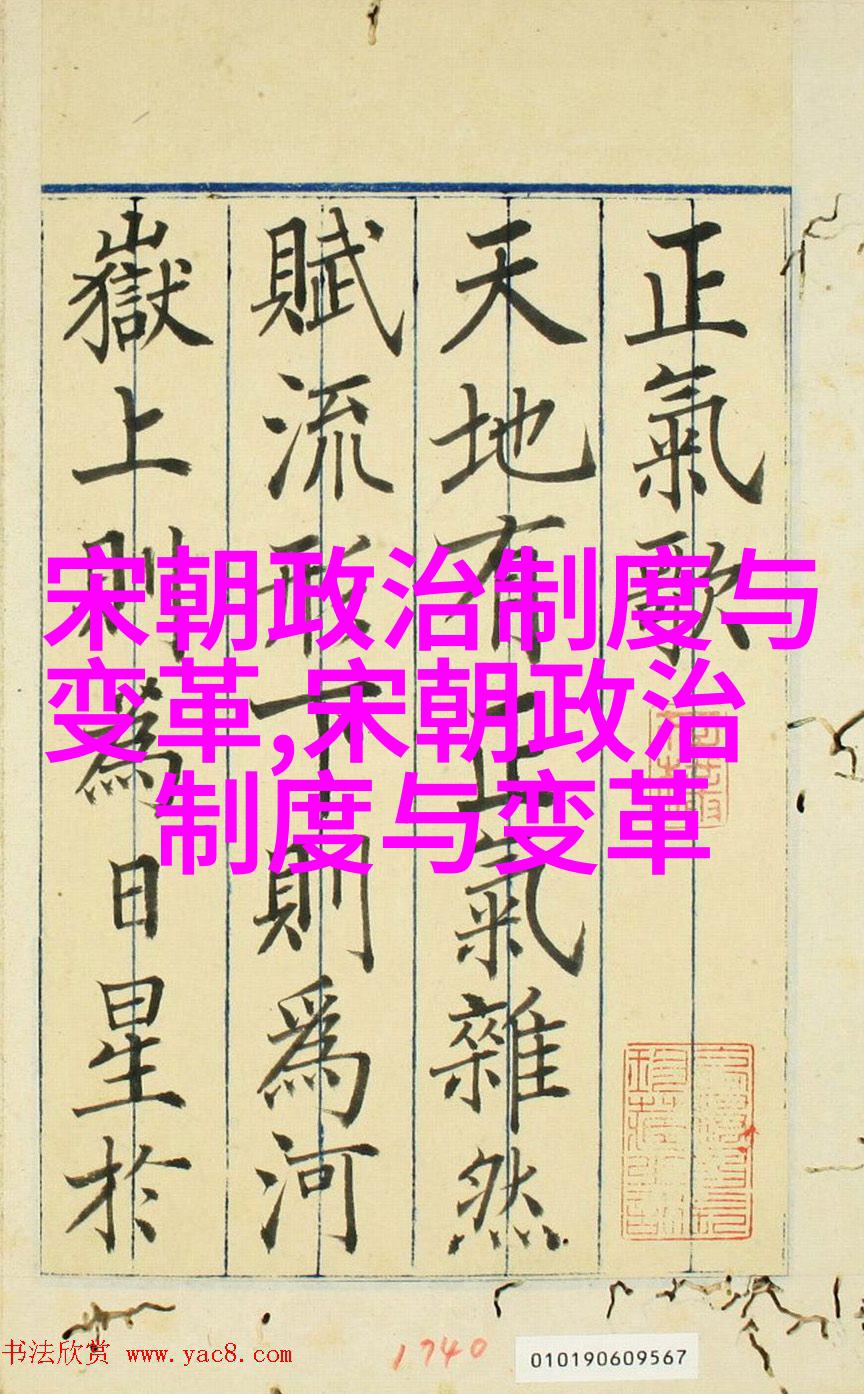 正氣歌
天地有正氣雜然
賦流形下則為河
嶽上則為日星於
宋朝政治制度与
变革,宋朝政治
制度与变革
书法欣赏 www.yac8.com
1740
010190609567